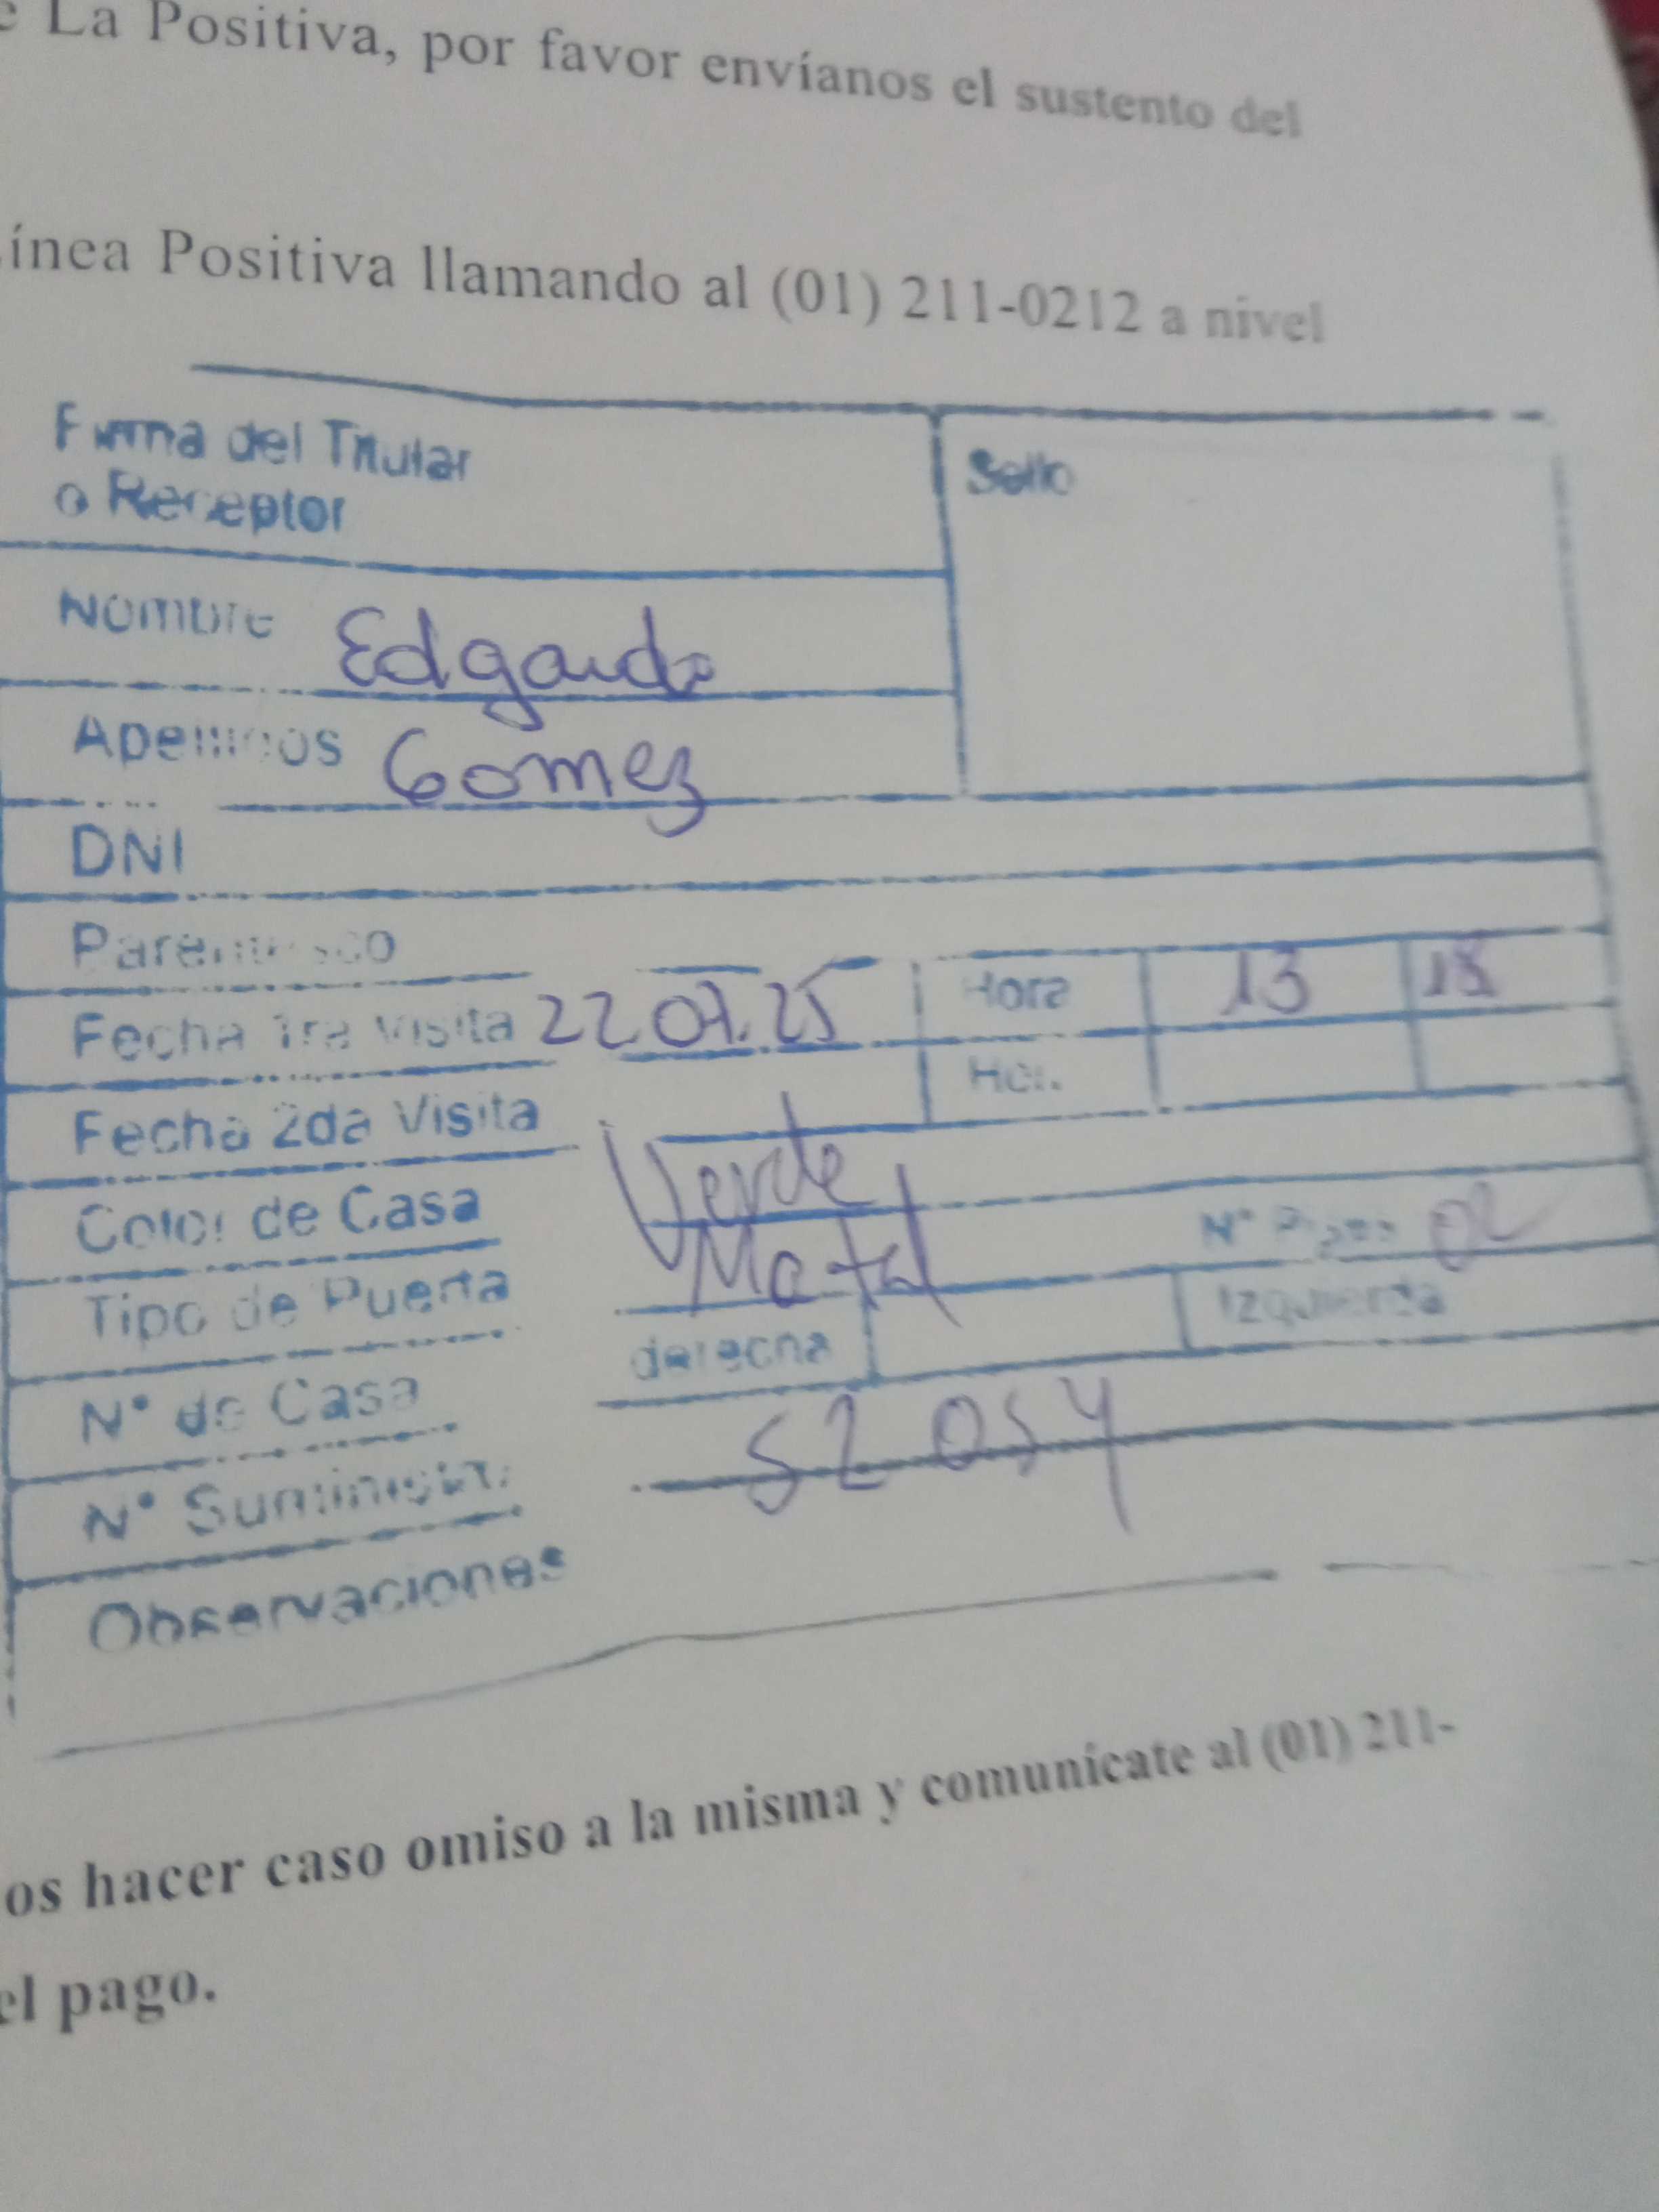 e La Positiva, por favor envíanos el sustento del
ínea Positiva llamando al (01) 211-0212 a nivel
Firma del Titular
o Receptor
Sello
Nombre Edgardo
Apellidos Gomez
DNI
Parentesco
Fecha 1ra Visita 22 07.25 Hora 13 18
Fecha 2da Visita Hora
Color de Casa Verde
Tipo de Puerta Metal N° Pisos 02
N° de Casa derecha Izquierda
N° Suministro 52054
Observaciones
os hacer caso omiso a la misma y comunícate al (01) 211-
el pago.